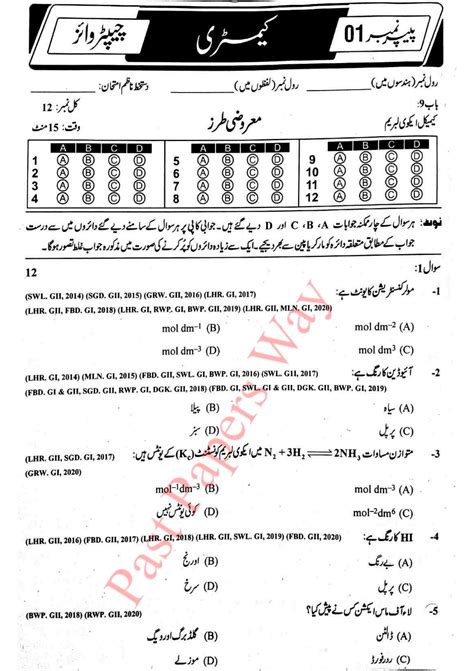 پیپر نمبر 01
کیمسٹری
چیپٹر وائز
رول نمبر (ہندسوں میں)
رول نمبر (لفظوں میں)
دستخط ناظم امتحان:
باب 9:
کل نمبر: 12
کیمیکل ایکوی لبریم
معروضی طرز
وقت: 15 منٹ
A B C D A B C D A B C D
1 A B C D 5 A B C D 9 A B C D
2 A B C D 6 A B C D 10 A B C D
3 A B C D 7 A B C D 11 A B C D
4 A B C D 8 A B C D 12 A B C D
نوٹ: ہر سوال کے چار ممکنہ جوابات A، B، C اور D دیے گئے ہیں۔ جوابی کاپی پر ہر سوال کے سامنے دیے گئے دائروں میں سے درست
جواب کے مطابق متعلقہ دائرہ کو مارکر یا پین سے بھر دیجیے۔ ایک سے زیادہ دائروں کو پُر کرنے کی صورت میں مذکورہ جواب غلط تصور ہوگا۔
سوال 1:
12
-1 مولر کنسنٹریشن کا یونٹ ہے:
(SWL. GII, 2014) (SGD. GII, 2015) (GRW. GII, 2016) (LHR. GI, 2017)
(LHR. GII, FBD. GI, 2018) (LHR. GI, RWP. GI, BWP. GII, 2019) (LHR. GII, MLN. GI, 2020)
(A) mol dm⁻² (B) mol dm⁻¹
(C) mol dm⁻³ (D) mol dm⁻³
-2 آئیوڈین کا رنگ ہے:
(LHR. GI, 2014) (MLN. GI, 2015) (FBD. GII, SWL. GI, BWP. GI, 2016) (SWL. GII, 2017)
(FBD. GI & GII, SGD. GII, RWP. GI, DGK. GII, 2018) (FBD. GI, SWL. GI & GII, DGK. GII, BWP. GI, 2019)
(A) سیاہ (B) پیلا
(C) پرپل (D) سبز
-3 متوازن مساوات N₂ + 3H₂ ⇌ 2NH₃ میں ایکوی لبریم کونسٹنٹ (Kc) کے یونٹس ہیں:
(LHR. GII, SGD. GI, 2017)
(GRW. GI, 2020)
(A) mol dm⁻³ (B) mol⁻¹dm⁻³
(C) mol⁻²dm⁶ (D) کوئی یونٹس نہیں
-4 HI کا رنگ ہے:
(LHR. GII, 2016) (FBD. GII, 2017) (LHR. GI, 2018) (LHR. GII, SWL. GI, 2019) (FBD. GII, 2020)
(A) بے رنگ (B) اورنج
(C) پرپل (D) سرخ
-5 لاء آف ماس ایکشن کس نے پیش کیا؟
(BWP. GII, 2018) (RWP. GII, 2020)
(A) ڈالٹن (B) گلڈبرگ اور ویگ
(C) ردرفورڈ (D) موزلے
Past Papers Way